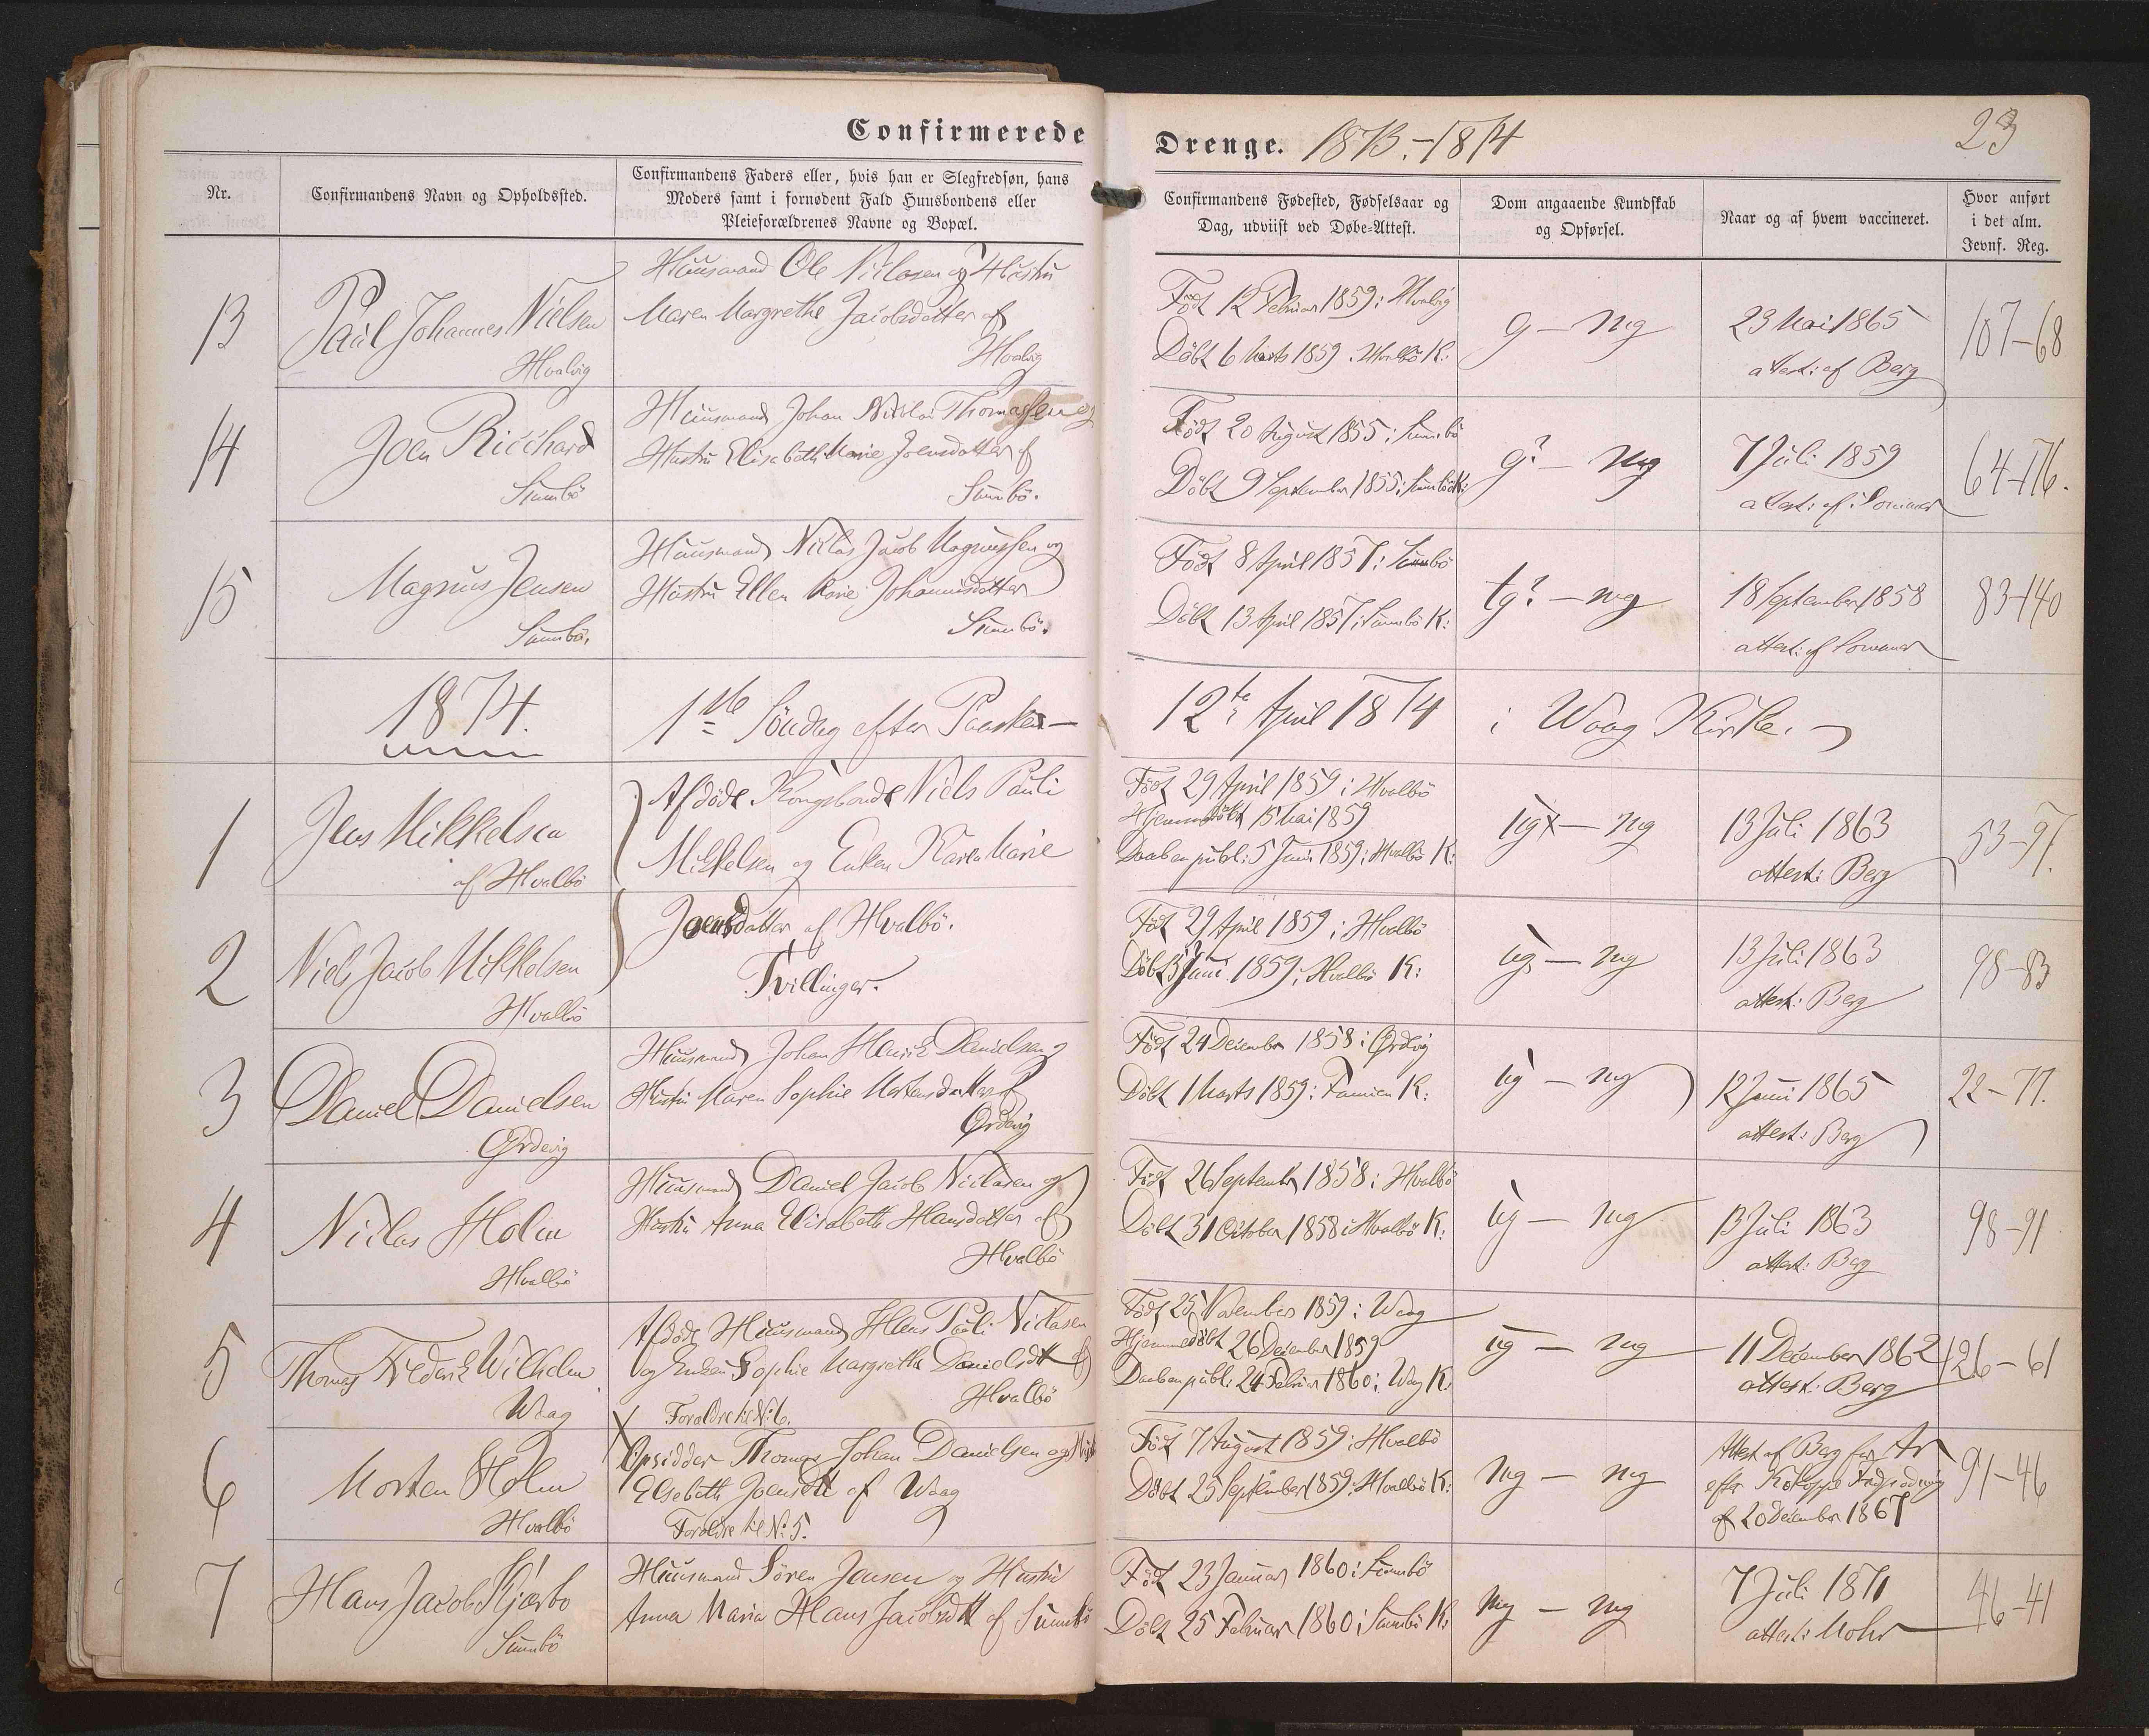 Confirmerede
Drenge. 1873.-1874
23
Nr.
Confirmandens Navn og Opholdssted.
Confirmandens Faders eller, hvis han er Slegfredsøn, hans
Moders samt i fornødent Fald Huusbondens eller
Pleieforældrenes Navne og Bopæl.
Confirmandens Fødested, Fødselsaar og
Dag, udviist ved Døbe-Attest.
Dom angaaende Kundskab
og Opførsel.
Naar og af hvem vaccineret.
Hvor anført
i det alm.
Jevnf. Reg.
13
Paul Johannes Nielsen
Hvalvig
Huusmand Ole Niclasen og Hustru
Maren Margrethe Jacobsdatter af
Hvalvig
Født 12 Februar 1859 i Hvalvig
Döbt 6 Marts 1859 i Hvalbö K:
g – mg
23 Mai 1865
attest: af Berg
107-68
14
Joen Ricchard
Sumbö
Huusmand Johan Nicklai Thomassen og
Hustru Elisabeth Marie Joensdatter af
Sumbö.
Født 20 August 1855 i Sumbö
Döbt 9 September 1855 i Sumbö K:
g? – mg
7 Juli 1859
attest: af
64-176.
15
Magnus Jensen
Sumbö.
Huusmand Niclas Jacob Magnussen og
Hustru Ellen Marie Johannisdatter
Sumbö.
Født 8 April 1857 i Sumbö
Döbt 13 April 1857 i Sumbö K:
tg? – mg
18 September 1858
attest: af
83-140
1874.
1ste Söndag efter Paaske –
12te April 1874
i Waag Kirke.
1
Jens Mikkelsen
af Hvalbö
Afdöde Kongsbonde Niels Pauli
Mikkelsen og Enken Karen Marie
Født 29 April 1859 i Hvalbö
Hjemmedöbt 15 Mai 1859
Daaben publ: 5 Juni 1859 i Hvalbö K:
ugx – mg
13 Juli 1863
attest: Berg
53-97.
2
Niels Jacob Mikkelsen
Hvalbö
Joensdatter af Hvalbö.
Tvillinger.
Født 29 April 1859 i Hvalbö
Döbt 5 Juni 1859 i Hvalbö K:
ug – mg
13 Juli 1863
attest: Berg
98-83
3
Daniel Danielsen
Ørdevig
Huusmand Johan Henrik Danielsen og
Hustru Maren Sophie Mortensdatter af
Ørdevig
Født 24 December 1858 i Ørdvig
Döbt 1 Marts 1859 i Famien K:
ug – mg
12 Juni 1865
attest: Berg
22-77.
4
Niclas Holm
Hvalbö
Huusmand Daniel Jacob Niclasen og
Hustru Anna Elisabeth Hansdatter af
Hvalbö
Født 26 September 1858 i Hvalbö
Döbt 31 October 1858 i Hvalbö K:
ug – mg
13 Juli 1863
attest: Berg
98-91
5
Thomas Frederik Wilhelm
Waag
Afdöde Huusmand Hans Pauli Niclasen
og Enken Sophie Margrethe Danielsdtt af
Hvalbö
Forældre til N: 6.
Født 25 November 1859 i Waag
Hjemmedöbt 26 December 1859
Daaben publ: 24 Februar 1860 i Waag K:
ug – mg
11 December 1862
attest: Berg
126-61
6
Morten Holm
Hvalbö
Opsidder Thomas Johan Danielsen og Hustr
Elsebeth Joensdtt af Waag
Forældre til N: 5.
Født 7 August 1859 i Hvalbö
Döbt 25 September 1859 i Hvalbö K:
mg – mg
Attest af Berg for
efter Kokoppe
af 20 December 1867
91-46
7
Hans Jacob Kjærbo
Sumbö
Huusmand Sören Jensen og Hustru
Anna Maria Hans Jacobsdtt af Sumbö
Født 23 Januar 1860 i Sumbö
Döbt 25 Februar 1860 i Sumbö K:
mg – mg
7 Juli 1871
attest: Mohr
46-41